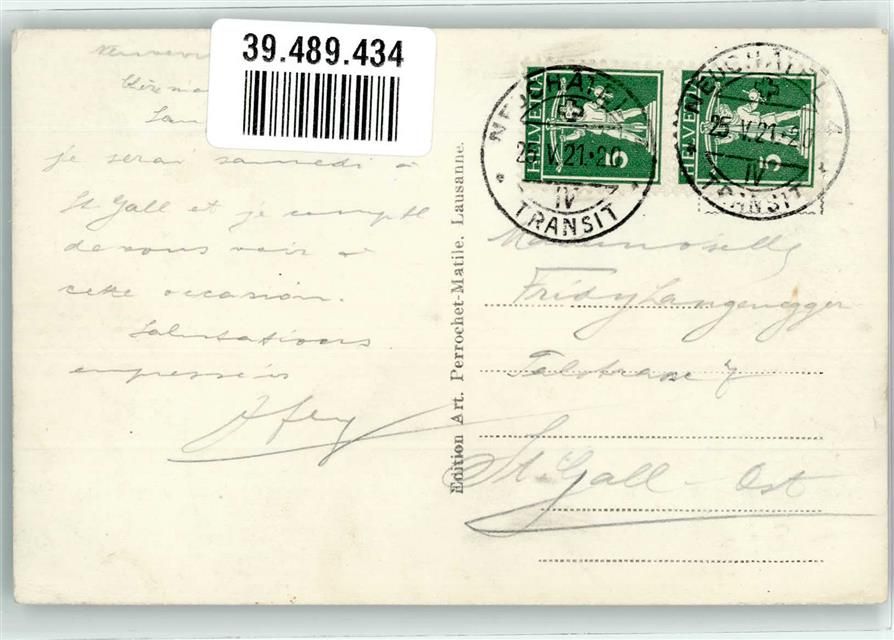 39.489.434
je serai samedi à
St Gall et je compte
de vous voir à
cette occasion.
Salutations
empressées
HELVETIA
5
NEUCHATEL
25.V.21·20
IV
TRANSIT
HELVETIA
5
NEUCHATEL
25.V.21·20
IV
TRANSIT
Edition Art. Perrochet-Matile, Lausanne.
Mademoiselle
Fridy Langenegger
Talstrasse 7
St. Gall - Ost